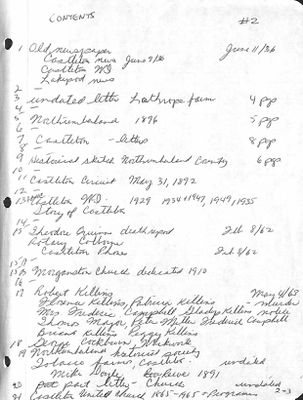 CONTENTS
#2
1 Old newspaper June 11/36
Castleton news June 9/36
Castleton WI
Lakeport news
2 -
3 undated letter Lathrope farm 4 pgs
4 -
5 Northumberland 1896 5 pgs
6 -
7 Castleton - letters 8 pgs
8 -
9 Historical sketch Northumberland County 6 pgs
10 -
11 Castleton Circuit May 31, 1892
12 -
13 Castleton WI. 1929 1934, 1947, 1949, 1935
Story of Castleton
14 -
15 Theodore Quinn death report Feb 8/62
Rotary Colborne
Castleton Phones Feb 8/62
15 B Morganston Church dedicated 1910
16 -
17 Robert Killins May 4/63
Florence Killins, Patricia Killins - murder
Mrs Frederic Campbell Gladys Killins notice
Thomas Major Pete Miller Frederic Campbell
Brian Killins Peggy Killins
18 George Cockburn, Warkwork
19 Northumberland historical society
Tobacco farms, Castleton undated
Mike Doyle, 1891
20 part letter - Church undated
21 Castleton United Church 1865-1965 + Programs 2-3